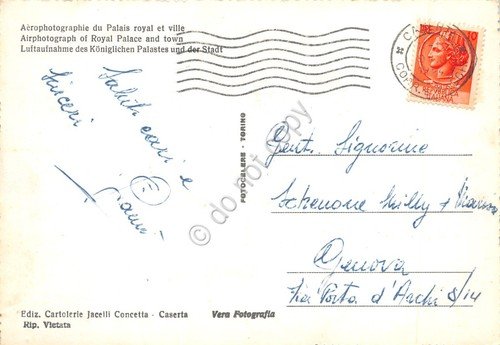 Aérophotographie du Palais royal et ville
Airphotograph of Royal Palace and town
Luftaufnahme des Königlichen Palastes und der Stadt
Saluti cari e
sinceri
Gianni
FOTOCELERE - TORINO
Gent. Signorine
Schenone Milly e
Genova
Via Porta d'Archi 8/14
Ediz. Cartolerie Jacelli Concetta - Caserta
Rip. Vietata
Vera Fotografia
do not copy